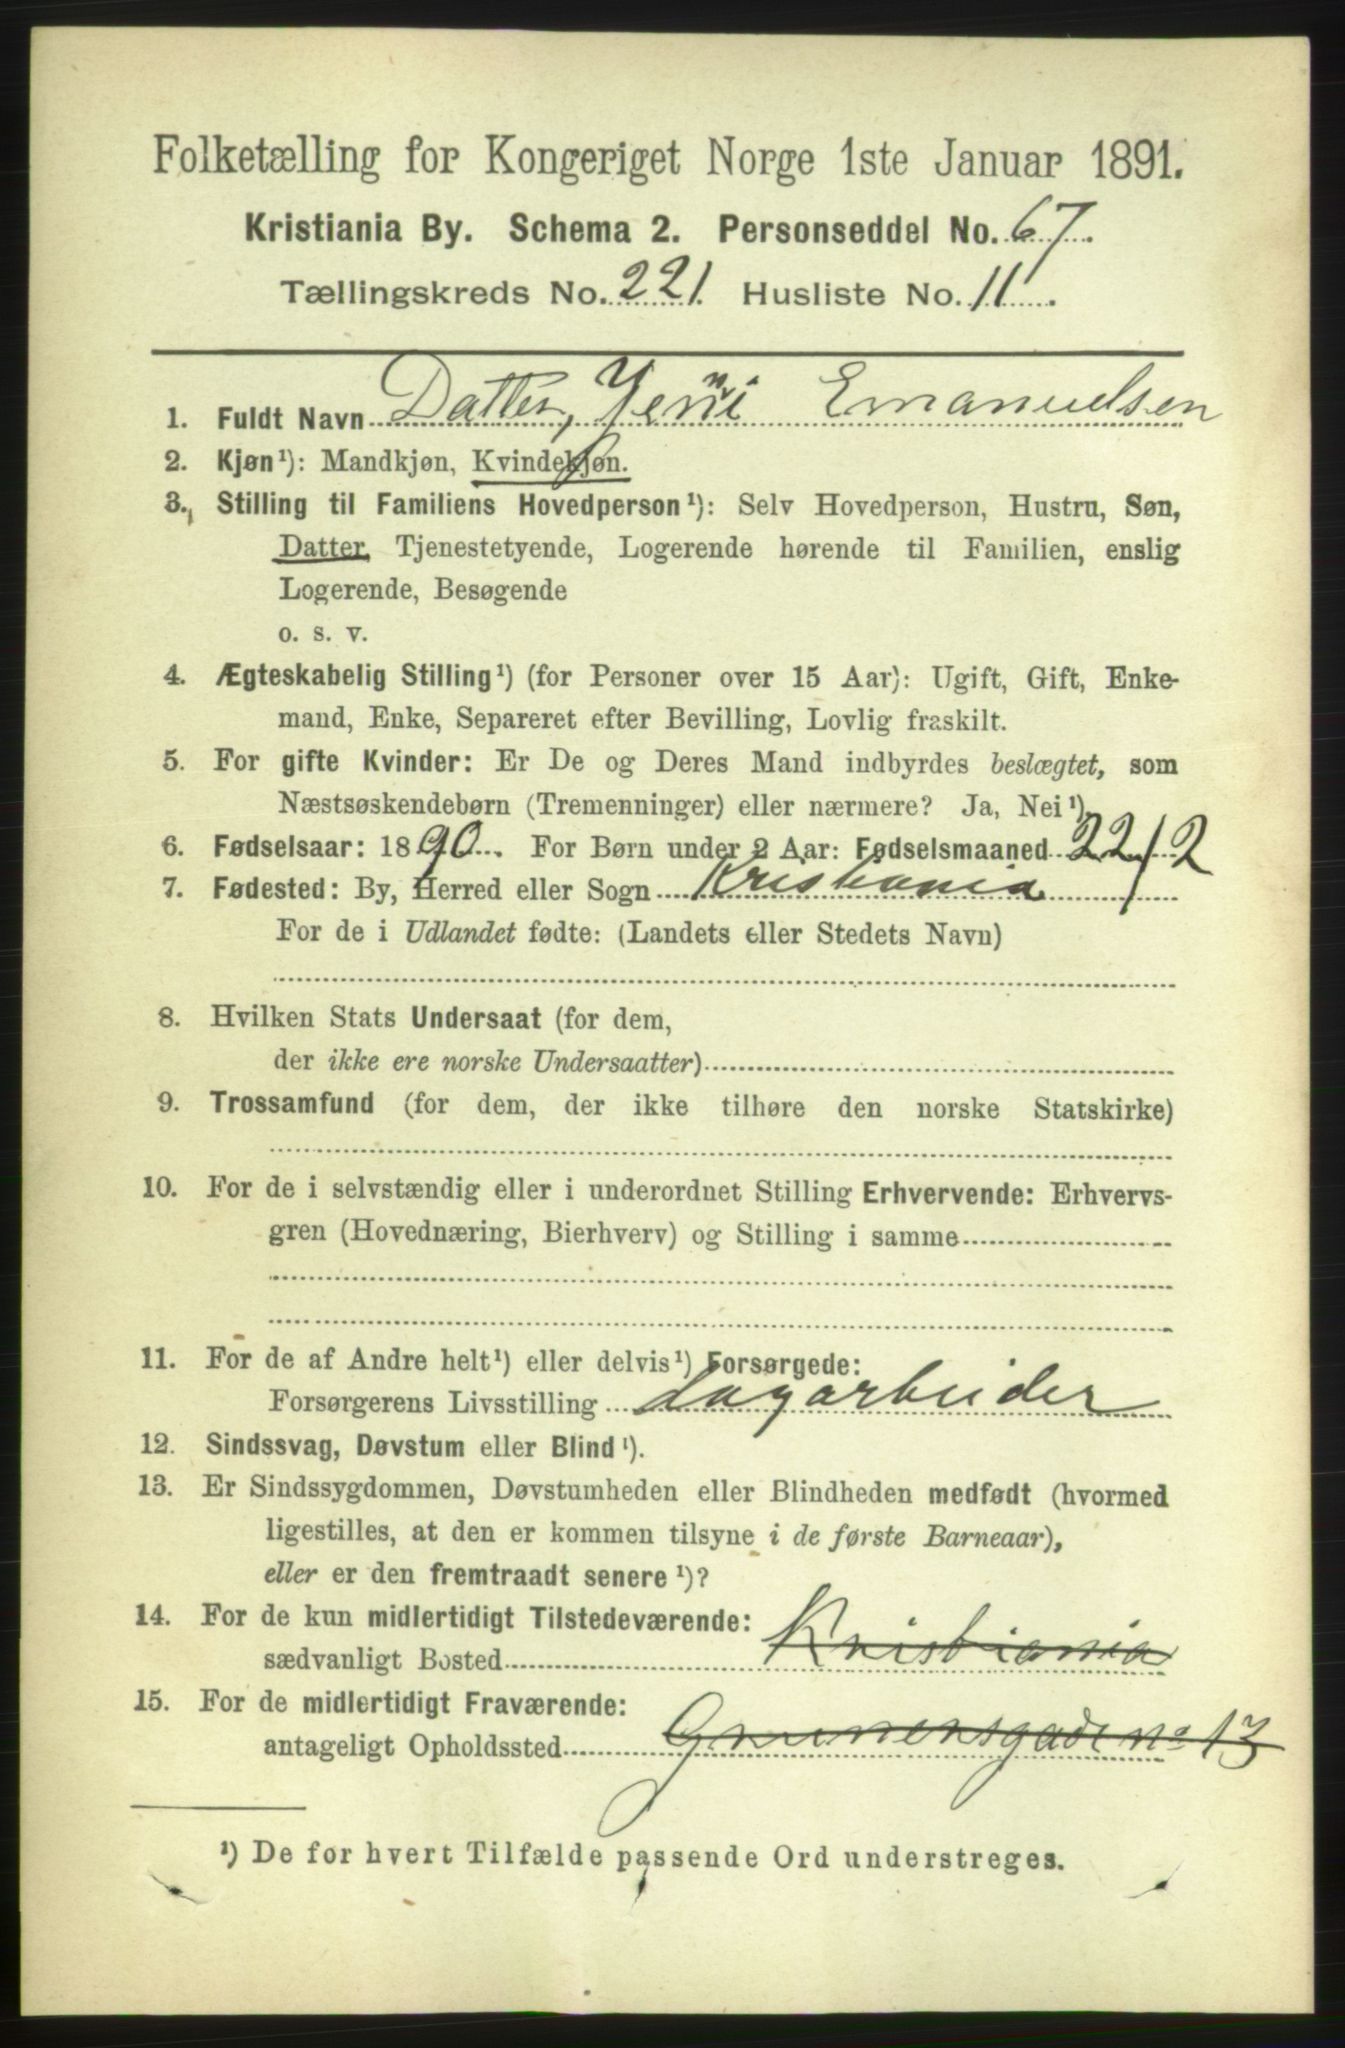 Folketælling for Kongeriget Norge 1ste Januar 1891.
Kristiania By. Schema 2. Personseddel No. 67.
Tællingskreds No. 221. Husliste No. 11.
1. Fuldt Navn Datter, Jenni Emanuelsen
2. Kjøn¹): Mandkjøn, Kvindekjøn.
3. Stilling til Familiens Hovedperson¹): Selv Hovedperson, Hustru, Søn,
Datter, Tjenestetyende, Logerende hørende til Familien, enslig
Logerende, Besøgende
o. s. v.
4. Ægteskabelig Stilling¹) (for Personer over 15 Aar): Ugift, Gift, Enke-
mand, Enke, Separeret efter Bevilling, Lovlig fraskilt.
5. For gifte Kvinder: Er De og Deres Mand indbyrdes beslægtet, som
Næstsøskendebørn (Tremenninger) eller nærmere? Ja, Nei¹).
6. Fødselsaar: 1890. For Børn under 2 Aar: Fødselsmaaned 22/2
7. Fødested: By, Herred eller Sogn Kristiania
For de i Udlandet fødte: (Landets eller Stedets Navn)
8. Hvilken Stats Undersaat (for dem,
der ikke ere norske Undersaatter)
9. Trossamfund (for dem, der ikke tilhøre den norske Statskirke)
10. For de i selvstændig eller i underordnet Stilling Erhvervende: Erhvervs-
gren (Hovednæring, Bierhverv) og Stilling i samme
11. For de af Andre helt¹) eller delvis¹) Forsørgede:
Forsørgerens Livsstilling Dagarbeider
12. Sindssvag, Døvstum eller Blind¹).
13. Er Sindssygdommen, Døvstumheden eller Blindheden medfødt (hvormed
ligestilles, at den er kommen tilsyne i de første Barneaar),
eller er den fremtraadt senere¹)?
14. For de kun midlertidigt Tilstedeværende:
sædvanligt Bosted Kristiania
15. For de midlertidigt Fraværende:
antageligt Opholdssted no 13
¹) De for hvert Tilfælde passende Ord understreges.